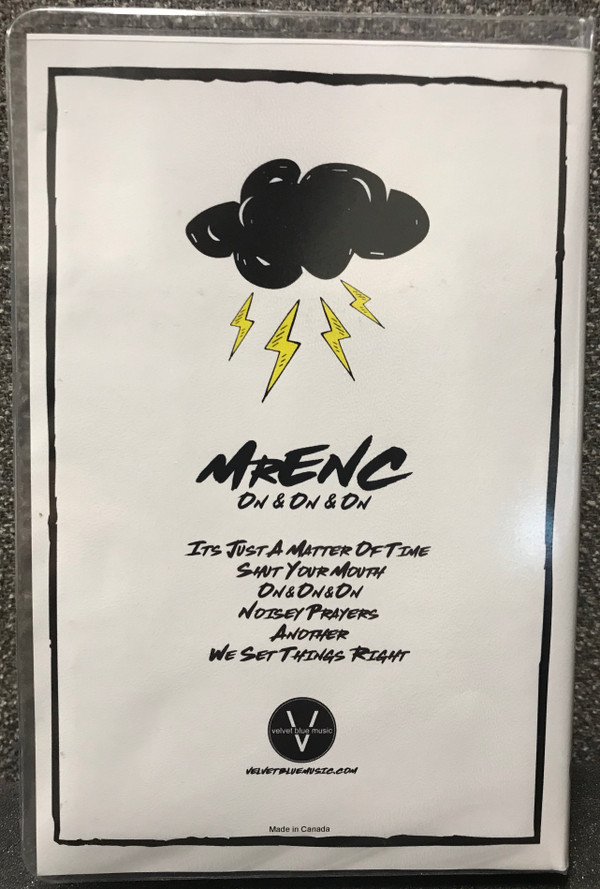 MRENC
ON & ON & ON
ITS JUST A MATTER OF TIME
SHUT YOUR MOUTH
ON&ON&ON
NOISEY PRAYERS
ANOTHER
WE SET THINGS RIGHT
V
velvet blue music
VELVETBLUEMUSIC.COM
Made in Canada